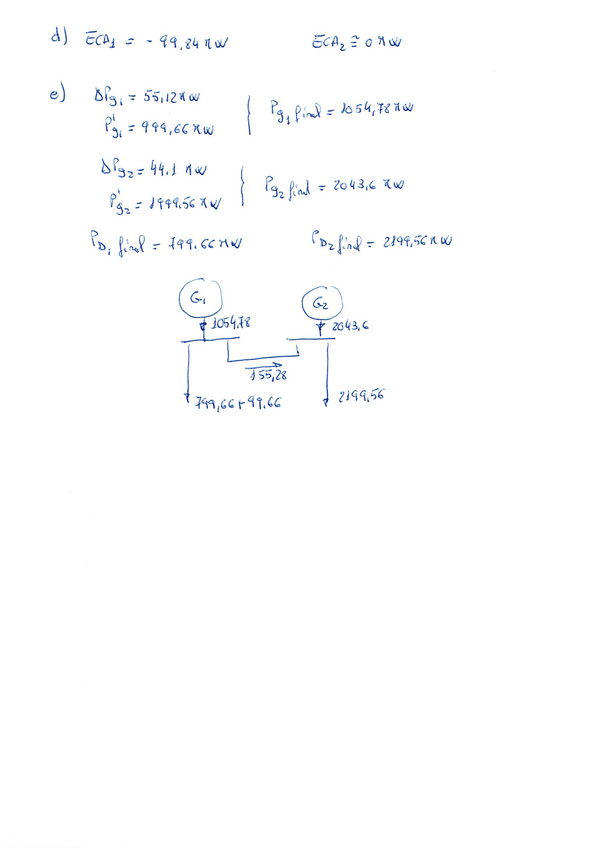 d) ECA1 = - 99,84 MW ECA2 ≅ 0 MW
e) ΔPg1 = 55,12 MW
P'g1 = 999,66 MW
Pg1 final = 1054,78 MW
ΔPg2 = 44,1 MW
P'g2 = 1999,56 MW
Pg2 final = 2043,6 MW
PD1 final = 799,66 MW PD2 final = 2199,56 MW
G1 G2
1054,78 2043,6
155,28
799,66 + 99,66 2199,56